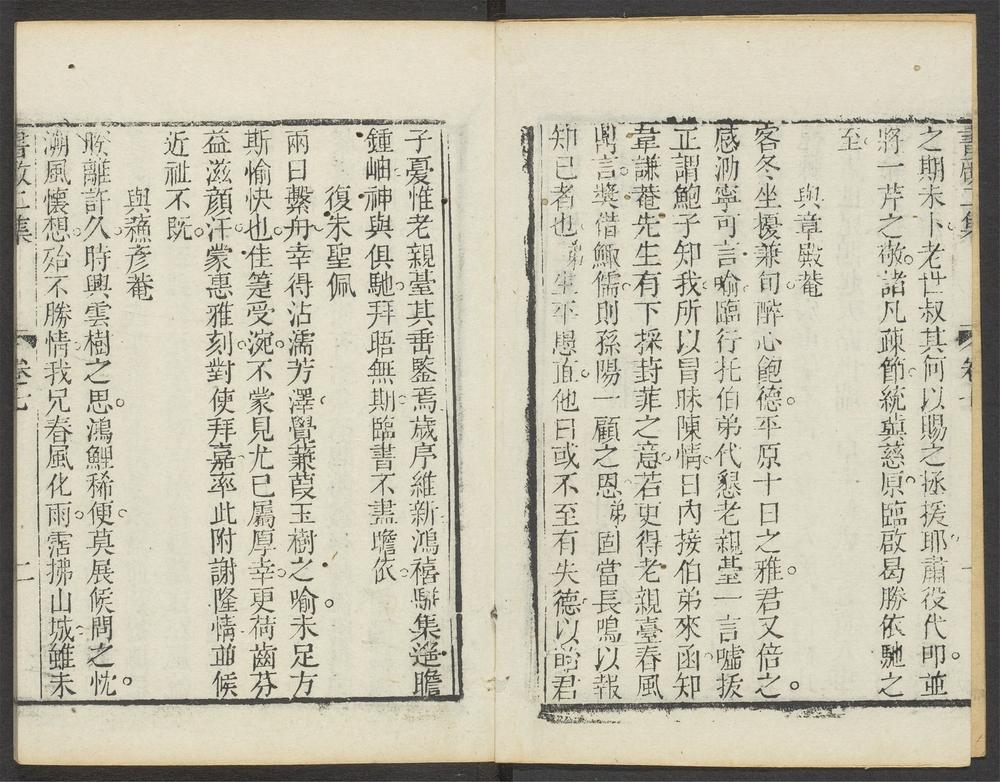 之期未卜老世叔其何以賜之拯援耶肅役代叩並
將一芹之敬諸凡疎節統與慈原臨啟曷勝依馳之
至
與章殿菴
客冬坐擾兼旬醉心飽德平原十日之雅君又倍之
感泐寧可言喻臨行托伯弟代懇老親臺一言噓拔
正謂鮑子知我所以冒昧陳情日內接伯弟來函知
韋謙菴先生有下採葑菲之意若更得老親臺春風
噓言獎借鯫儒則孫陽一顧之恩弟固當長鳴以報
知己者也弟生平愚直他日或不至有失德以貽君
子憂惟老親臺其垂鑒焉歲序維新鴻禧駢集遙瞻
鍾岫神與俱馳拜晤無期臨書不盡瞻依
復朱聖佩
兩日繫舟幸得沾濡芳澤覺蒹葭玉樹之喻未足方
斯愉快也佳箑受涴不蒙見尤已屬厚幸更荷齒芬
益滋顏汗蒙惠雅刻對使拜嘉率此附謝隆情並候
近祉不既
與蘓彥菴
睽離許久時興雲樹之思鴻鯉稀便莫展候問之忱
溯風懷想殆不勝情我兄春風化雨霑拂山城雖未
二集
卷七
二